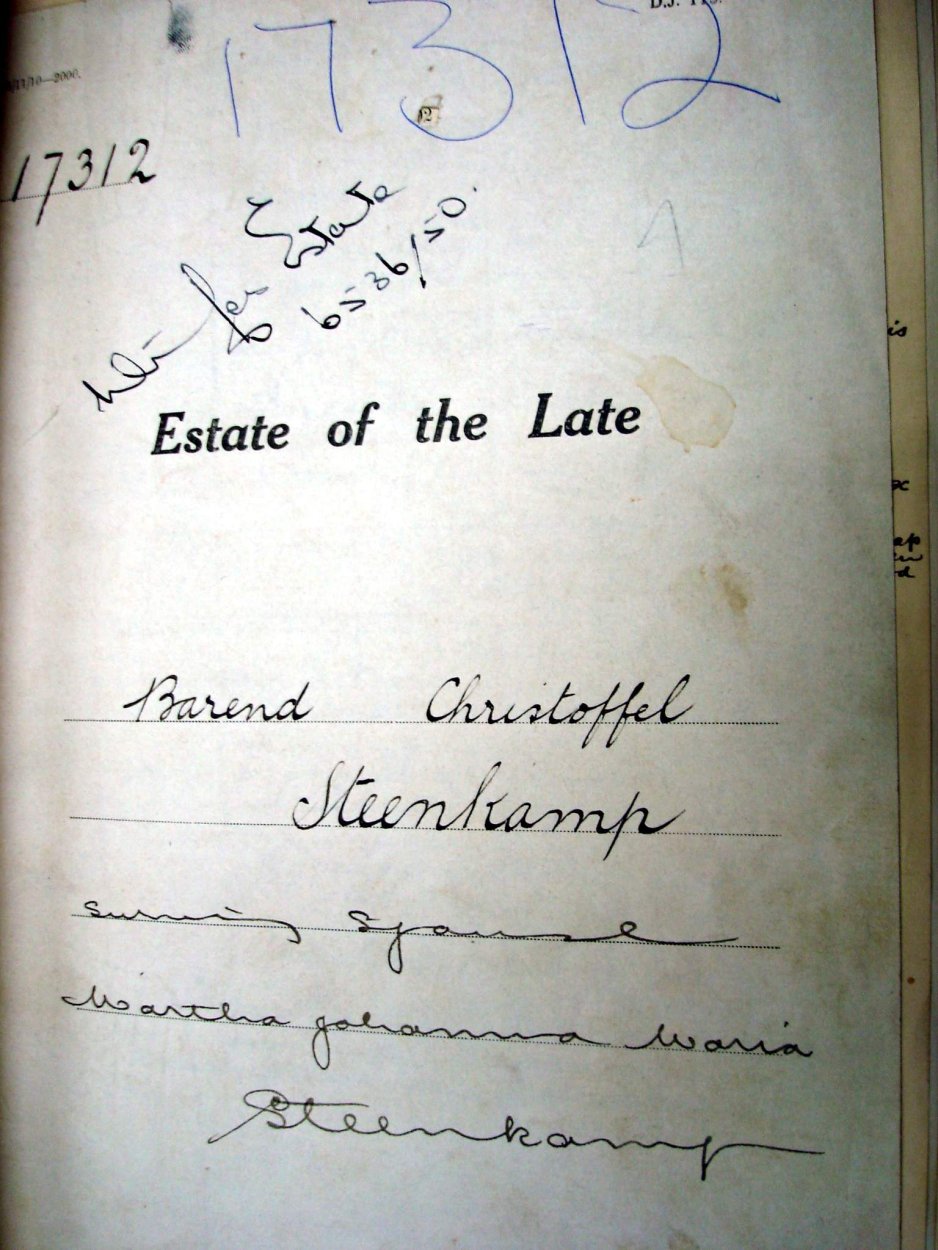 17312
/11/10—2000.
17312
Estate
6536/50.
Estate of the Late
Barend Christoffel
Steenkamp
surviving Spouse
Martha Johanna Maria
Steenkamp
is